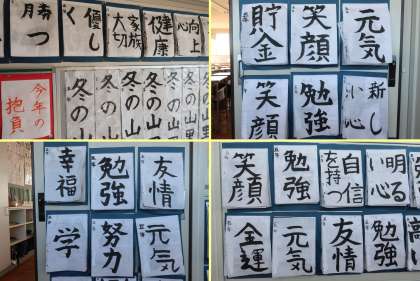 勝つ
優しく
家族
大切
健康
向上
心
今年の
抱負
冬の山
冬の山
冬の山
冬の山
冬の山里
貯金
笑顔
元気
笑顔
勉強
新し
い心
幸福
勉強
友情
学
努力
元気
笑顔
勉強
自信
を持つ
明る
い心
金運
元気
友情
勉強
高い